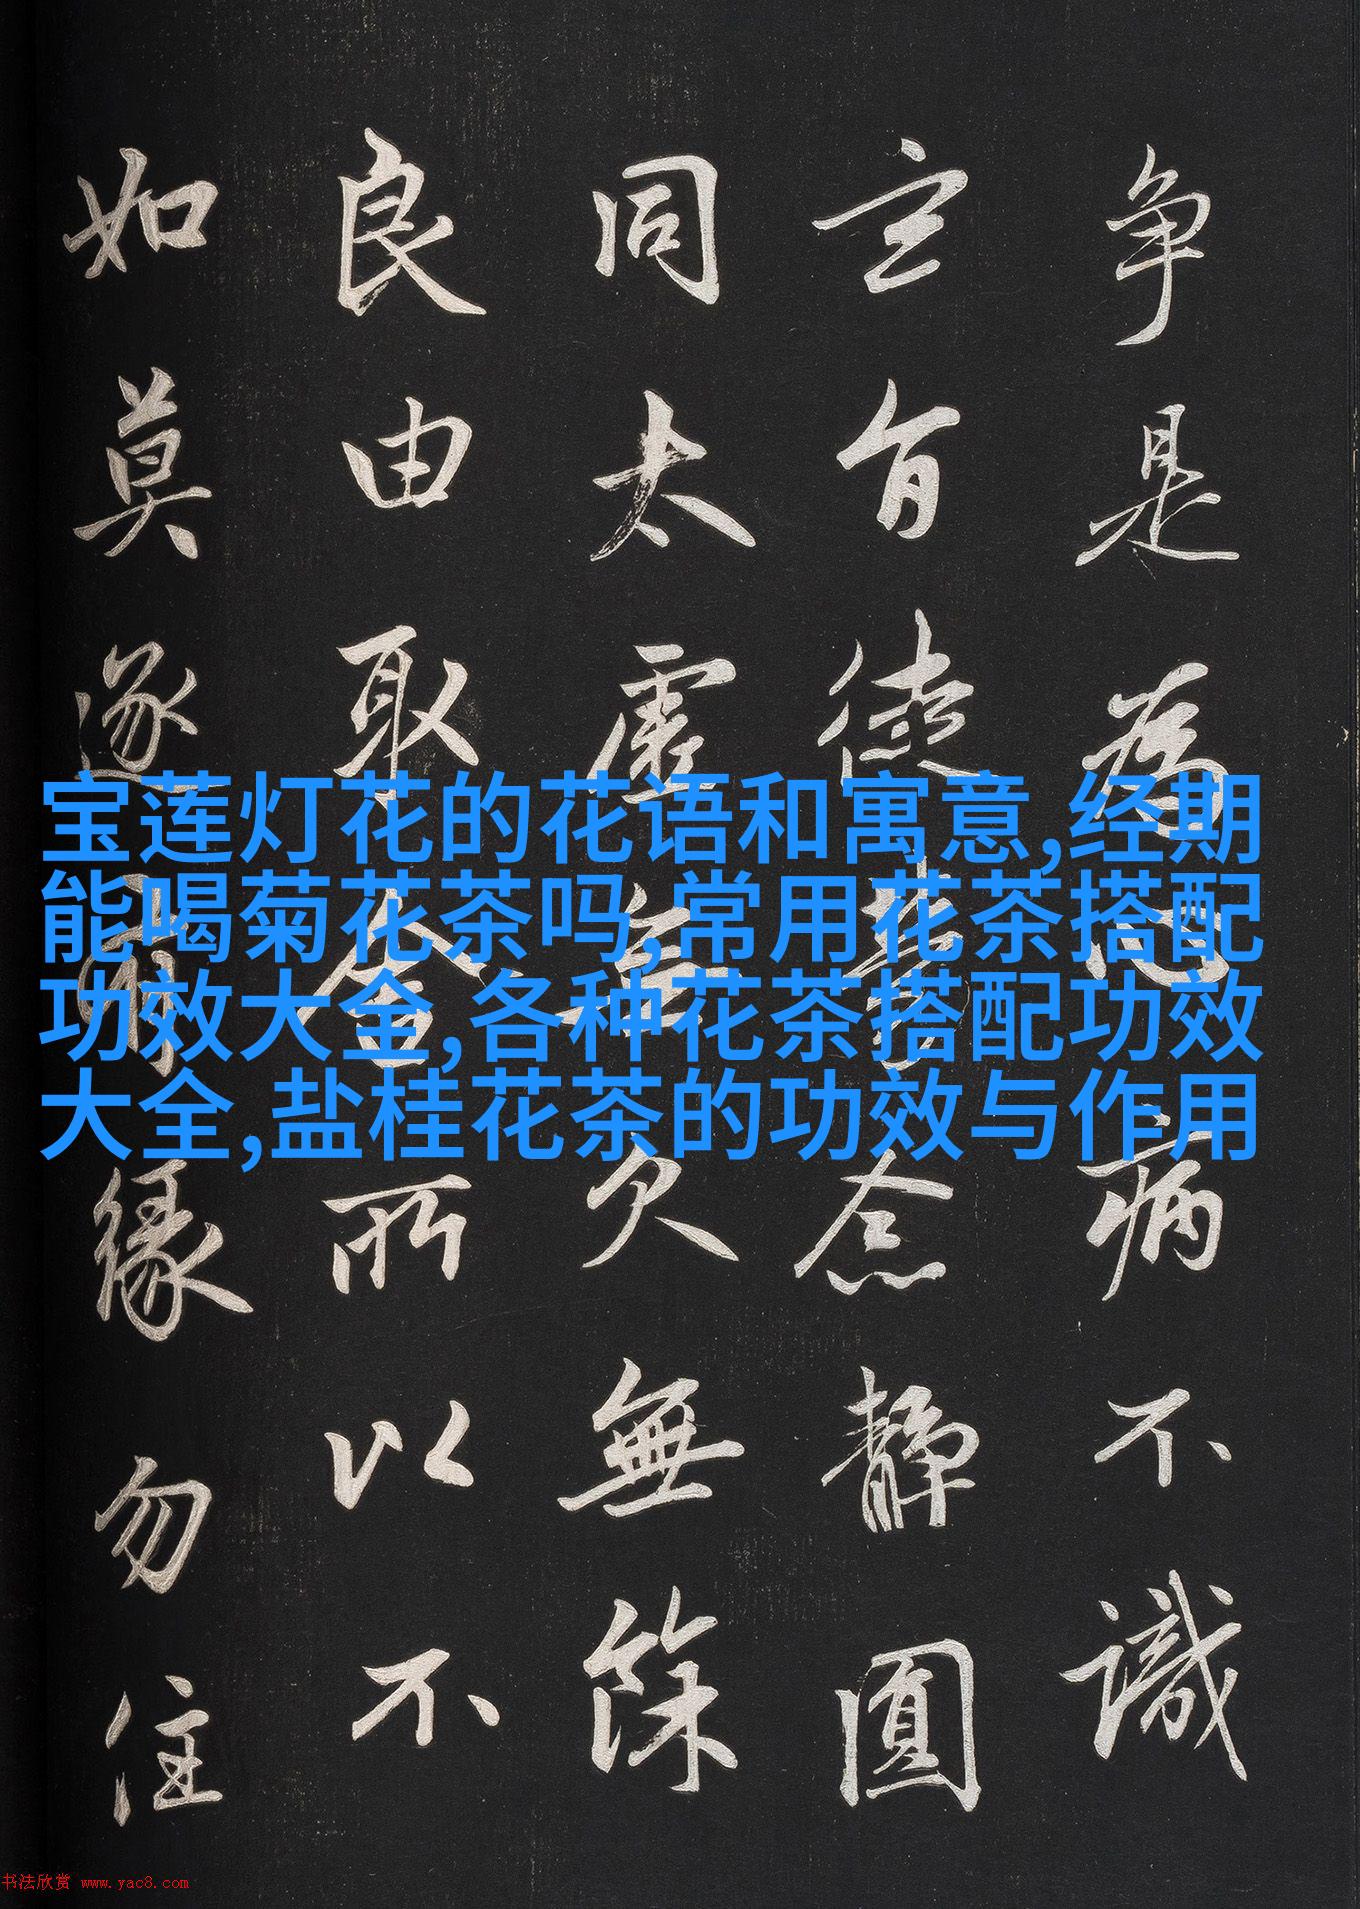 争是為心病不識
玄旨徒勞念靜圓
同太虛無欠無餘
良由取舍所以不
如莫逐有緣勿住
宝莲灯花的花语和寓意,经期
能喝菊花茶吗,常用花茶搭配
功效大全,各种花茶搭配功效
大全,盐桂花茶的功效与作用
书法欣赏 www.yac8.com